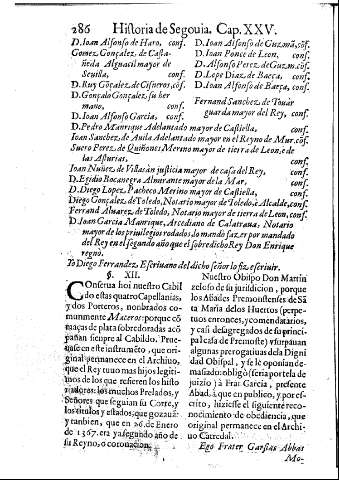 286 Historia de Segouia. Cap. XXV.
D. Ioan Alfonso de Haro, conf.
Gomez, Gonçalez, de Castañeda Alguacil mayor de
Seuilla, conf.
D. Ruy Gõçalez, de Cisneros, cõf.
D. Gonçalo Gonçalez, su hermano, conf.
D. Ioan Alfonso Garcia, conf.
D. Ioan Alfonso de Guzmã, cõf.
D. Ioan Ponce de Leon, conf.
D. Alfonso Perez de Guzm. cõf.
D. Lope Diaz de Baeça, conf.
D. Ioan Alfonso de Baeça, conf.
Fernand Sanchez de Touar
guarda mayor del Rey, conf.
D. Pedro Manrique Adelantado mayor de Castiella, conf.
Ioan Sanchez de Auila Adelantado mayor en el Reyno de Mur. cõf.
Suero Perez de Quiñones Merino mayor de tierra de Leon, e de
las Asturias, conf.
Ioan Nuñez de Villazán justicia mayor de casa del Rey, conf.
D. Egidio Bocanegra Almirante mayor de la Mar, conf.
D. Diego Lopez, Pacheco Merino mayor de Castiella, conf.
Diego Gonçalez, de Toledo, Notario mayor de Toledo, è Alcalde, conf.
Ferrand Aluarez, de Toledo, Notario mayor de tierra de Leon, conf.
D. Ioan Garcia Manrique, Arcediano de Calatraua, Notario
mayor de los priuilegios rodados, lo mandò fazer por mandado
del Rey en el segundo año que el sobredicho Rey Don Enrique
regnò.
Yo Diego Fernandez, Escriuano del dicho señor lo fiz escriuir.
§. XII.
COnserua hoi nuestro Cabildo estas quatro Capellanias,
y dos Porteros, nonbrados comunmente Maceros: porque cõ
maças de plata sobredoradas acõpañan sienpre al Cabildo. Prueuase en este instrumẽto, que original permanece en el Archiuo,
que el Rey tuuo mas hijos legitimos de los que refieren los historiadores: los muchos Prelados, y
Señores que seguian su Corte, y
los titulos y estados, que gozauã:
y tanbien, que en 26. de Enero
de 1367. era ya segundo año de
su Reyno, o coronacion.
Nuestro Obispo Don Martin
zeloso de su jurisdicion, porque
los Abades Premonstenses de Sãta Maria delos Huertos (perpetuos entonces, y comendatarios,
y casi desagregados de su principal casa de Premoste) vsurpauan
algunas prerogatiuas dela Dignidad Obispal, y se lè oponian demasiado: obligò (seria por tela de
juizio) à Frai Garcia, presente
Abad, à que en publico, y por escrito, hiziesse el siguiente reconocimiento de obediencia, que
original permanece en el Archiuo Catedral.
Ego Frater Garsias Abbas
Mo-